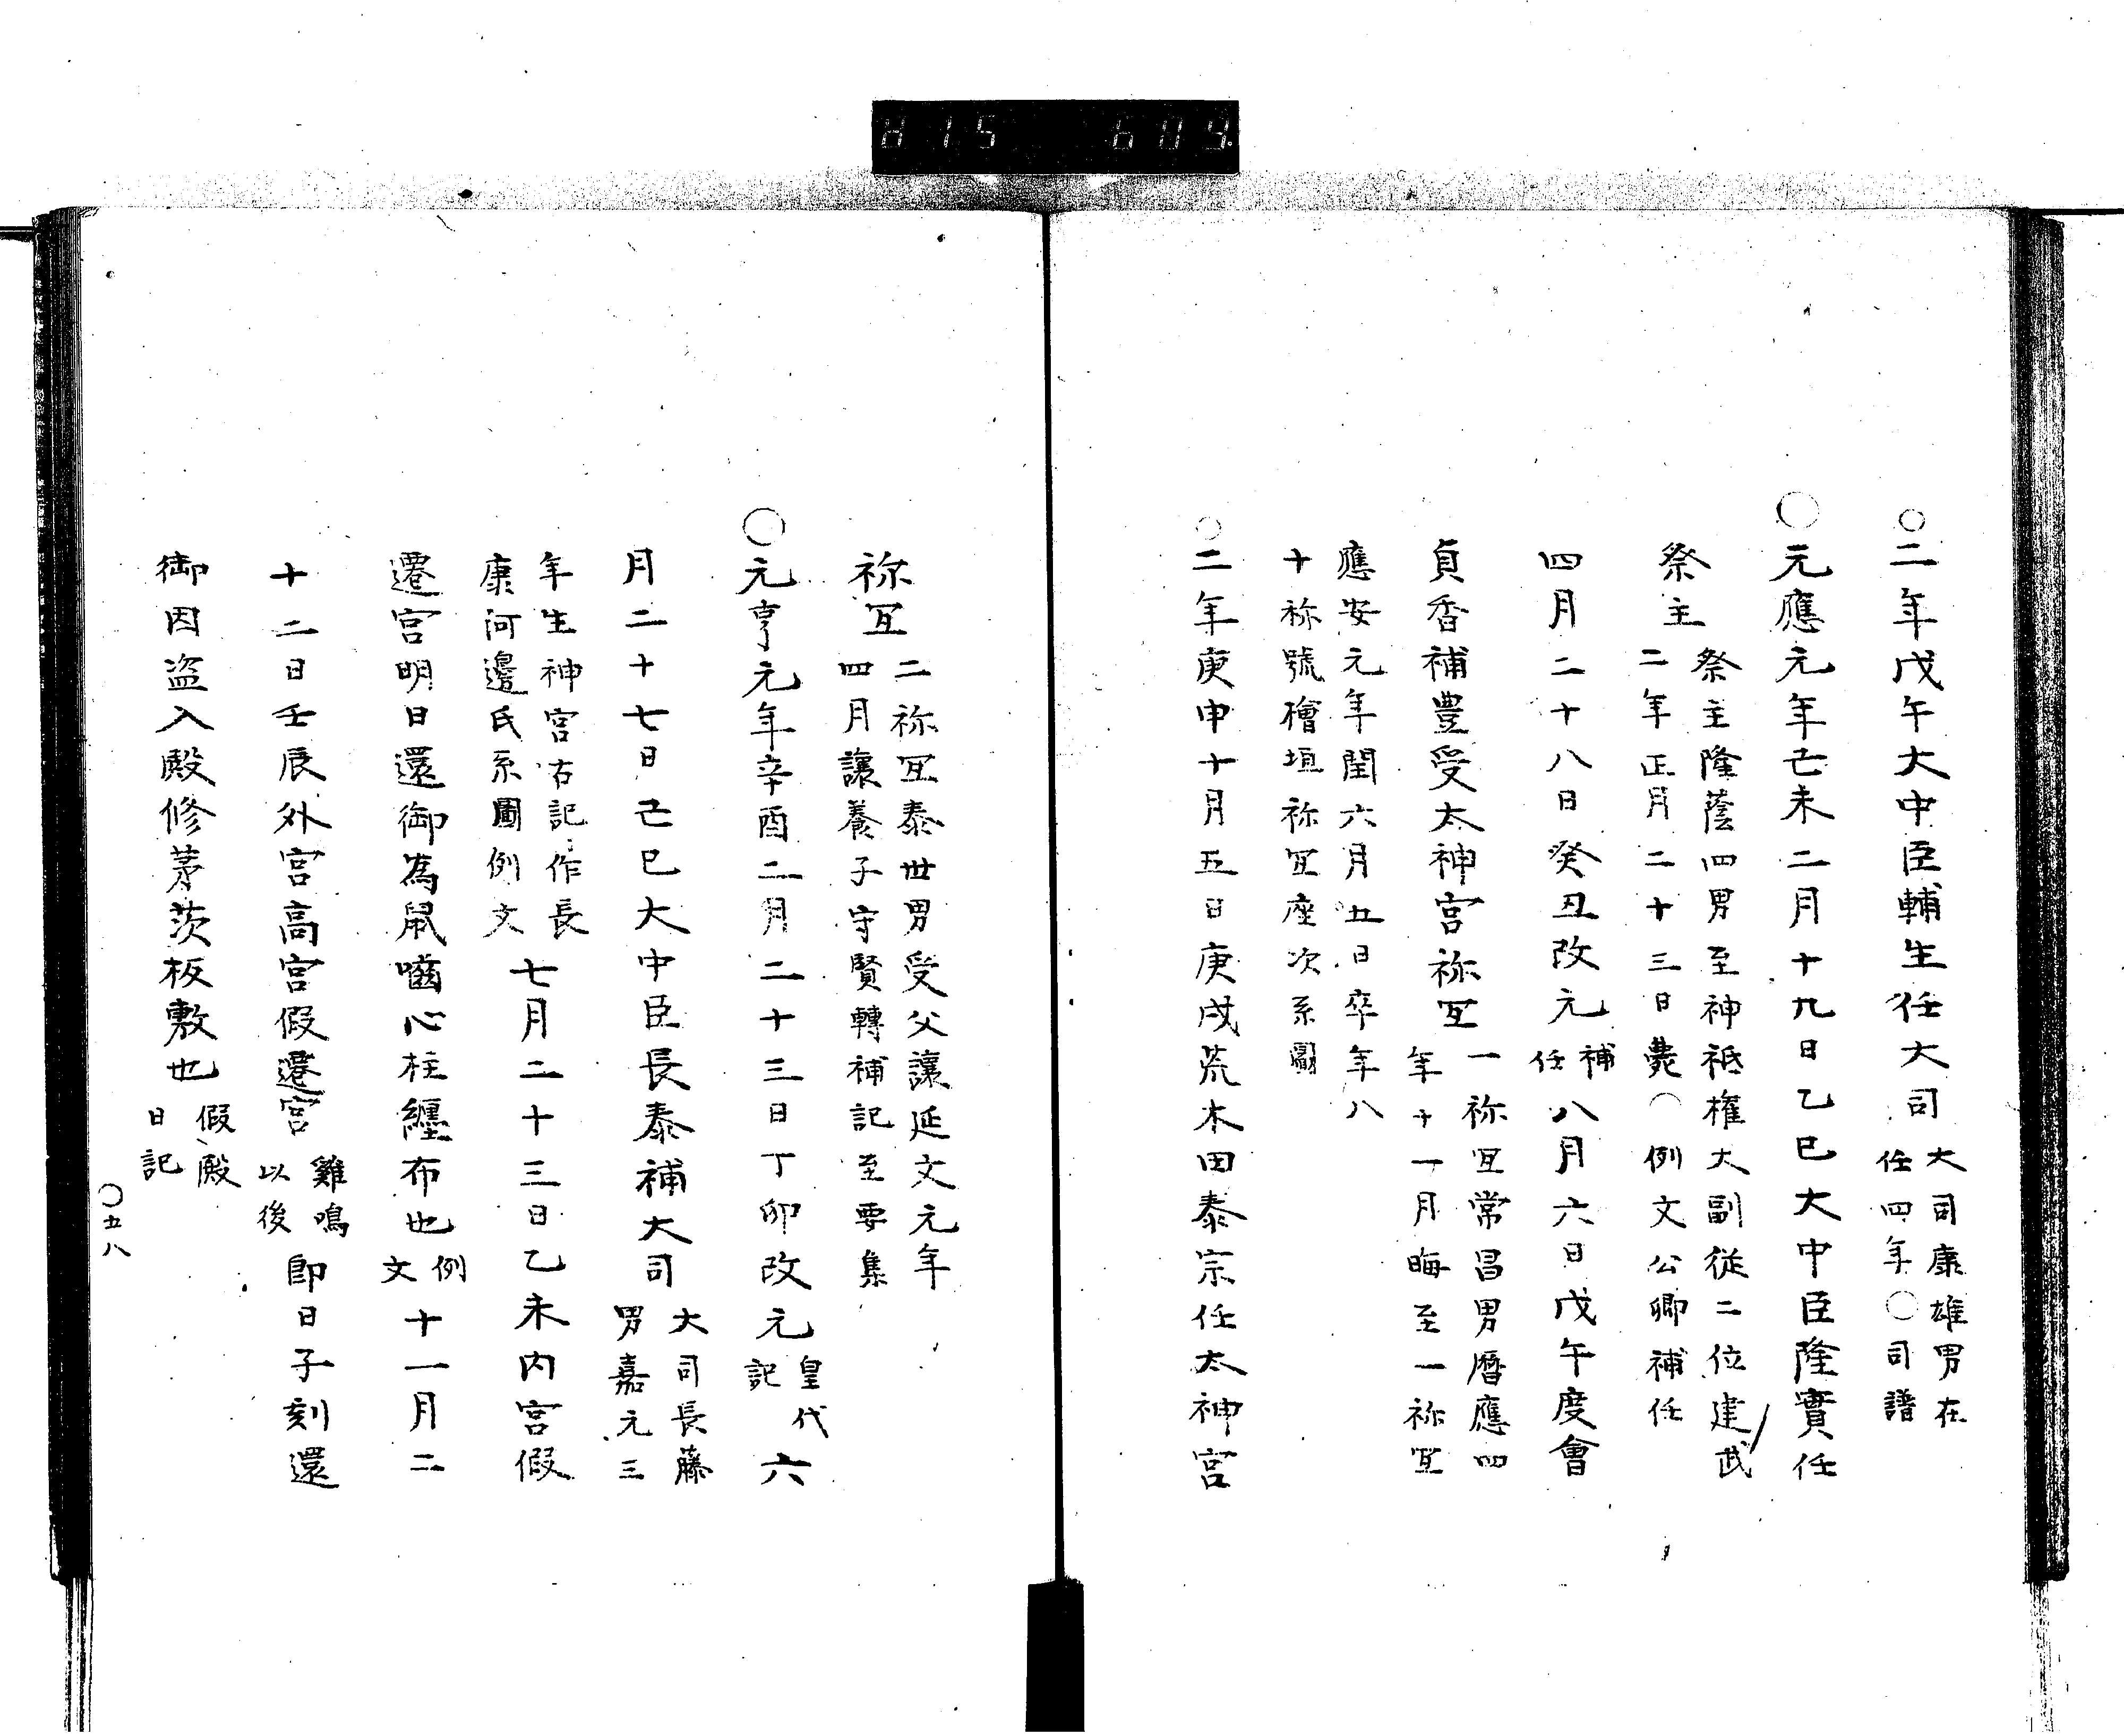 815 609
○二年戊午大中臣輔生任大司大司康雄男在
任四年○司譜
○元應元年己未二月十九日乙巳大中臣隆實任
祭主祭主隆蔭四男至神祗權大副從二位建武
二年正月二十三日薨○例文公卿補任
四月二十八日癸丑改元補
任八月六日戊午度會
貞香補豊受太神宮祢冝一祢冝常昌男曆應四
年十一月晦至一祢冝
應安元年閏六月五日卒年八
十祢號檜垣祢冝座次系圖
○二年庚申十月五日庚戌荒木田泰宗任太神宮
祢冝二祢冝泰世男受父讓延文元年
四月讓養子守賢轉補記至要集
○元亨元年辛酉二月二十三日丁卯改元皇代
記六
月二十七日己巳大中臣長泰補大司大司長藤
男嘉元三
年生神宮古記作長
康河邊氏系圖例文七月二十三日乙未内宮假
遷宮明日還御為鼠嚙心柱纏布也例
文十一月二
十二日壬辰外宮高宮假遷宮雞鳴
以後即日子刻還
御因盗入殿修茅茨板敷也假殿
日記
○五八